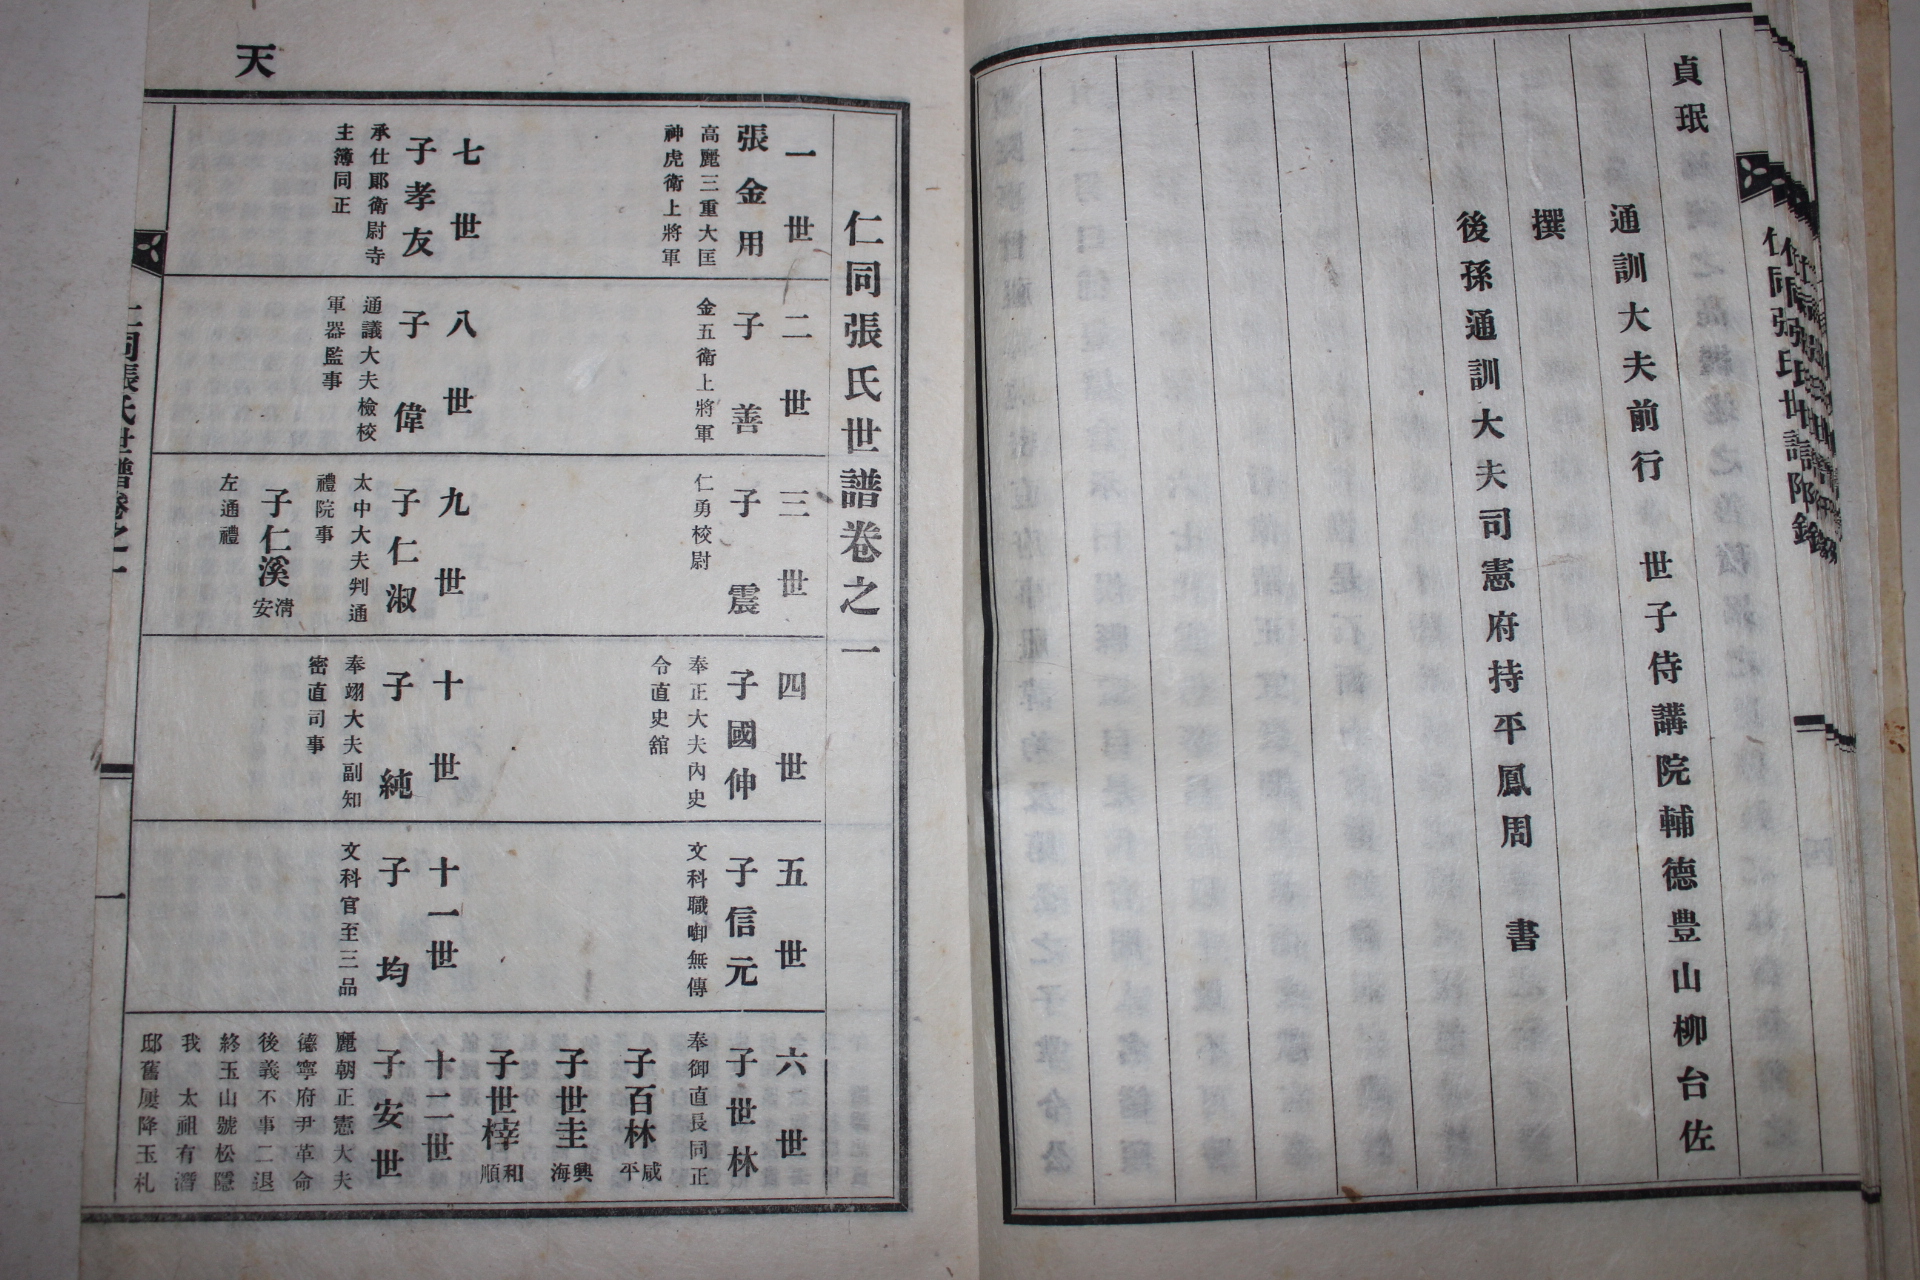 貞珉
通訓大夫前行 世子侍講院輔德豊山柳台佐
撰
後孫通訓大夫司憲府持平鳳周 書
仁同張氏世譜附錄
天
仁同張氏世譜卷之一
一世
張金用
高麗三重大匡
神虎衛上將軍
二世
子善
金五衛上將軍
三世
子震
仁勇校尉
四世
子國伸
奉正大夫內史
令直史舘
五世
子信元
文科職啣無傳
六世
子世林
奉御直長同正
子百林 咸平
子世圭 興海
子世梓 和順
七世
子孝友
承仕郞衛尉寺
主簿同正
八世
子偉
通議大夫檢校
軍器監事
九世
子仁淑
太中大夫判通
禮院事
子仁溪 清安
左通禮
十世
子純
奉翊大夫副知
密直司事
十一世
子均
文科官至三品
十二世
子安世
麗朝正憲大夫
德寧府尹革命
後義不事二退
終玉山號松隱
我 太祖有潛
邸舊屢降玉札
仁同張氏世譜卷之一
一